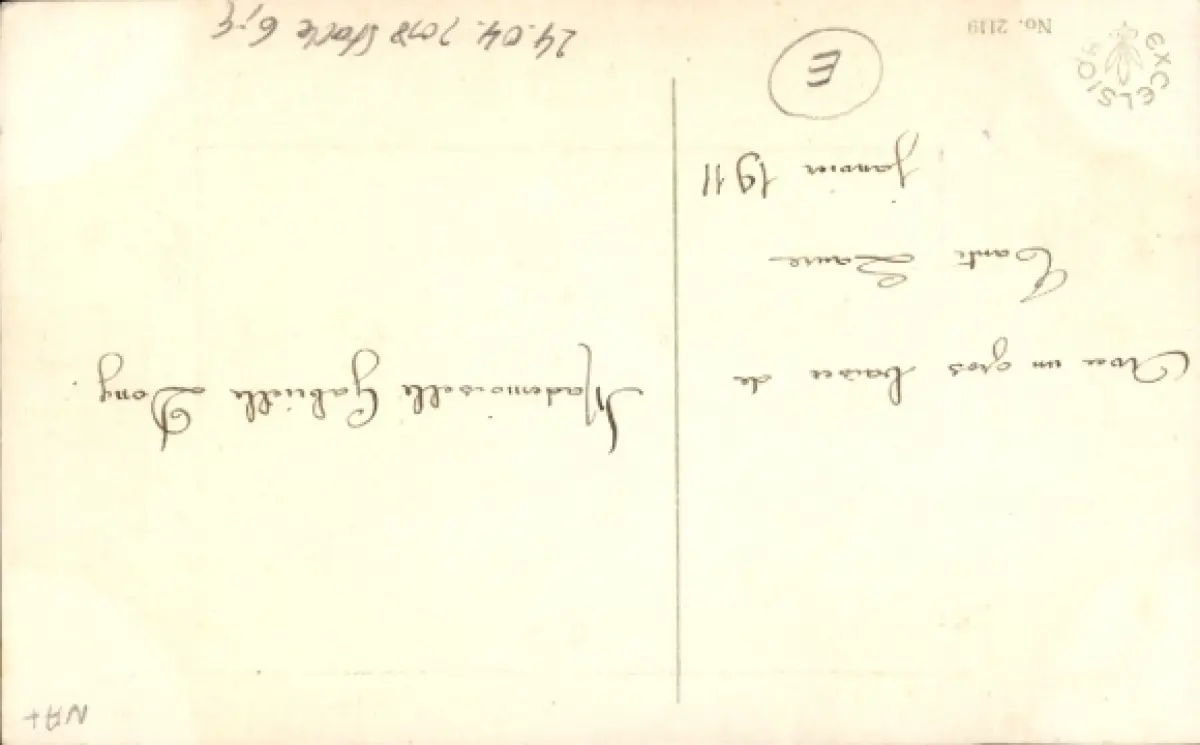 Avec un gros baiser de
Tante Laure
janvier 1911
Mademoiselle Gabrielle Dony.
E
No. 2119
EXCELSIOR
24.04.2018
NA+